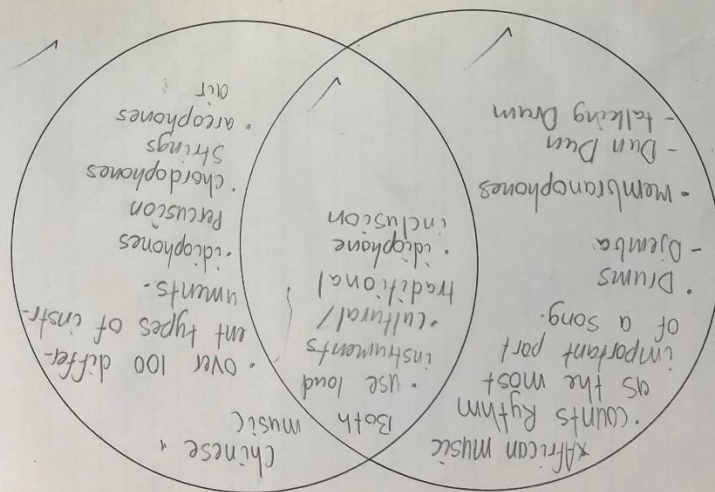 *African music
• counts Rythm
as the most
important part
of a song.
• Drums
- Djemba
• membranophones
- Dun Dun
- talking Drum
Both
• use loud
instruments
• cultural/
traditional
• idiophone
inclusion
Chinese
music
• over 100 differ-
ent types of instr-
uments.
• idiophones
Percusion
• chordophones
Strings
• areophones
air